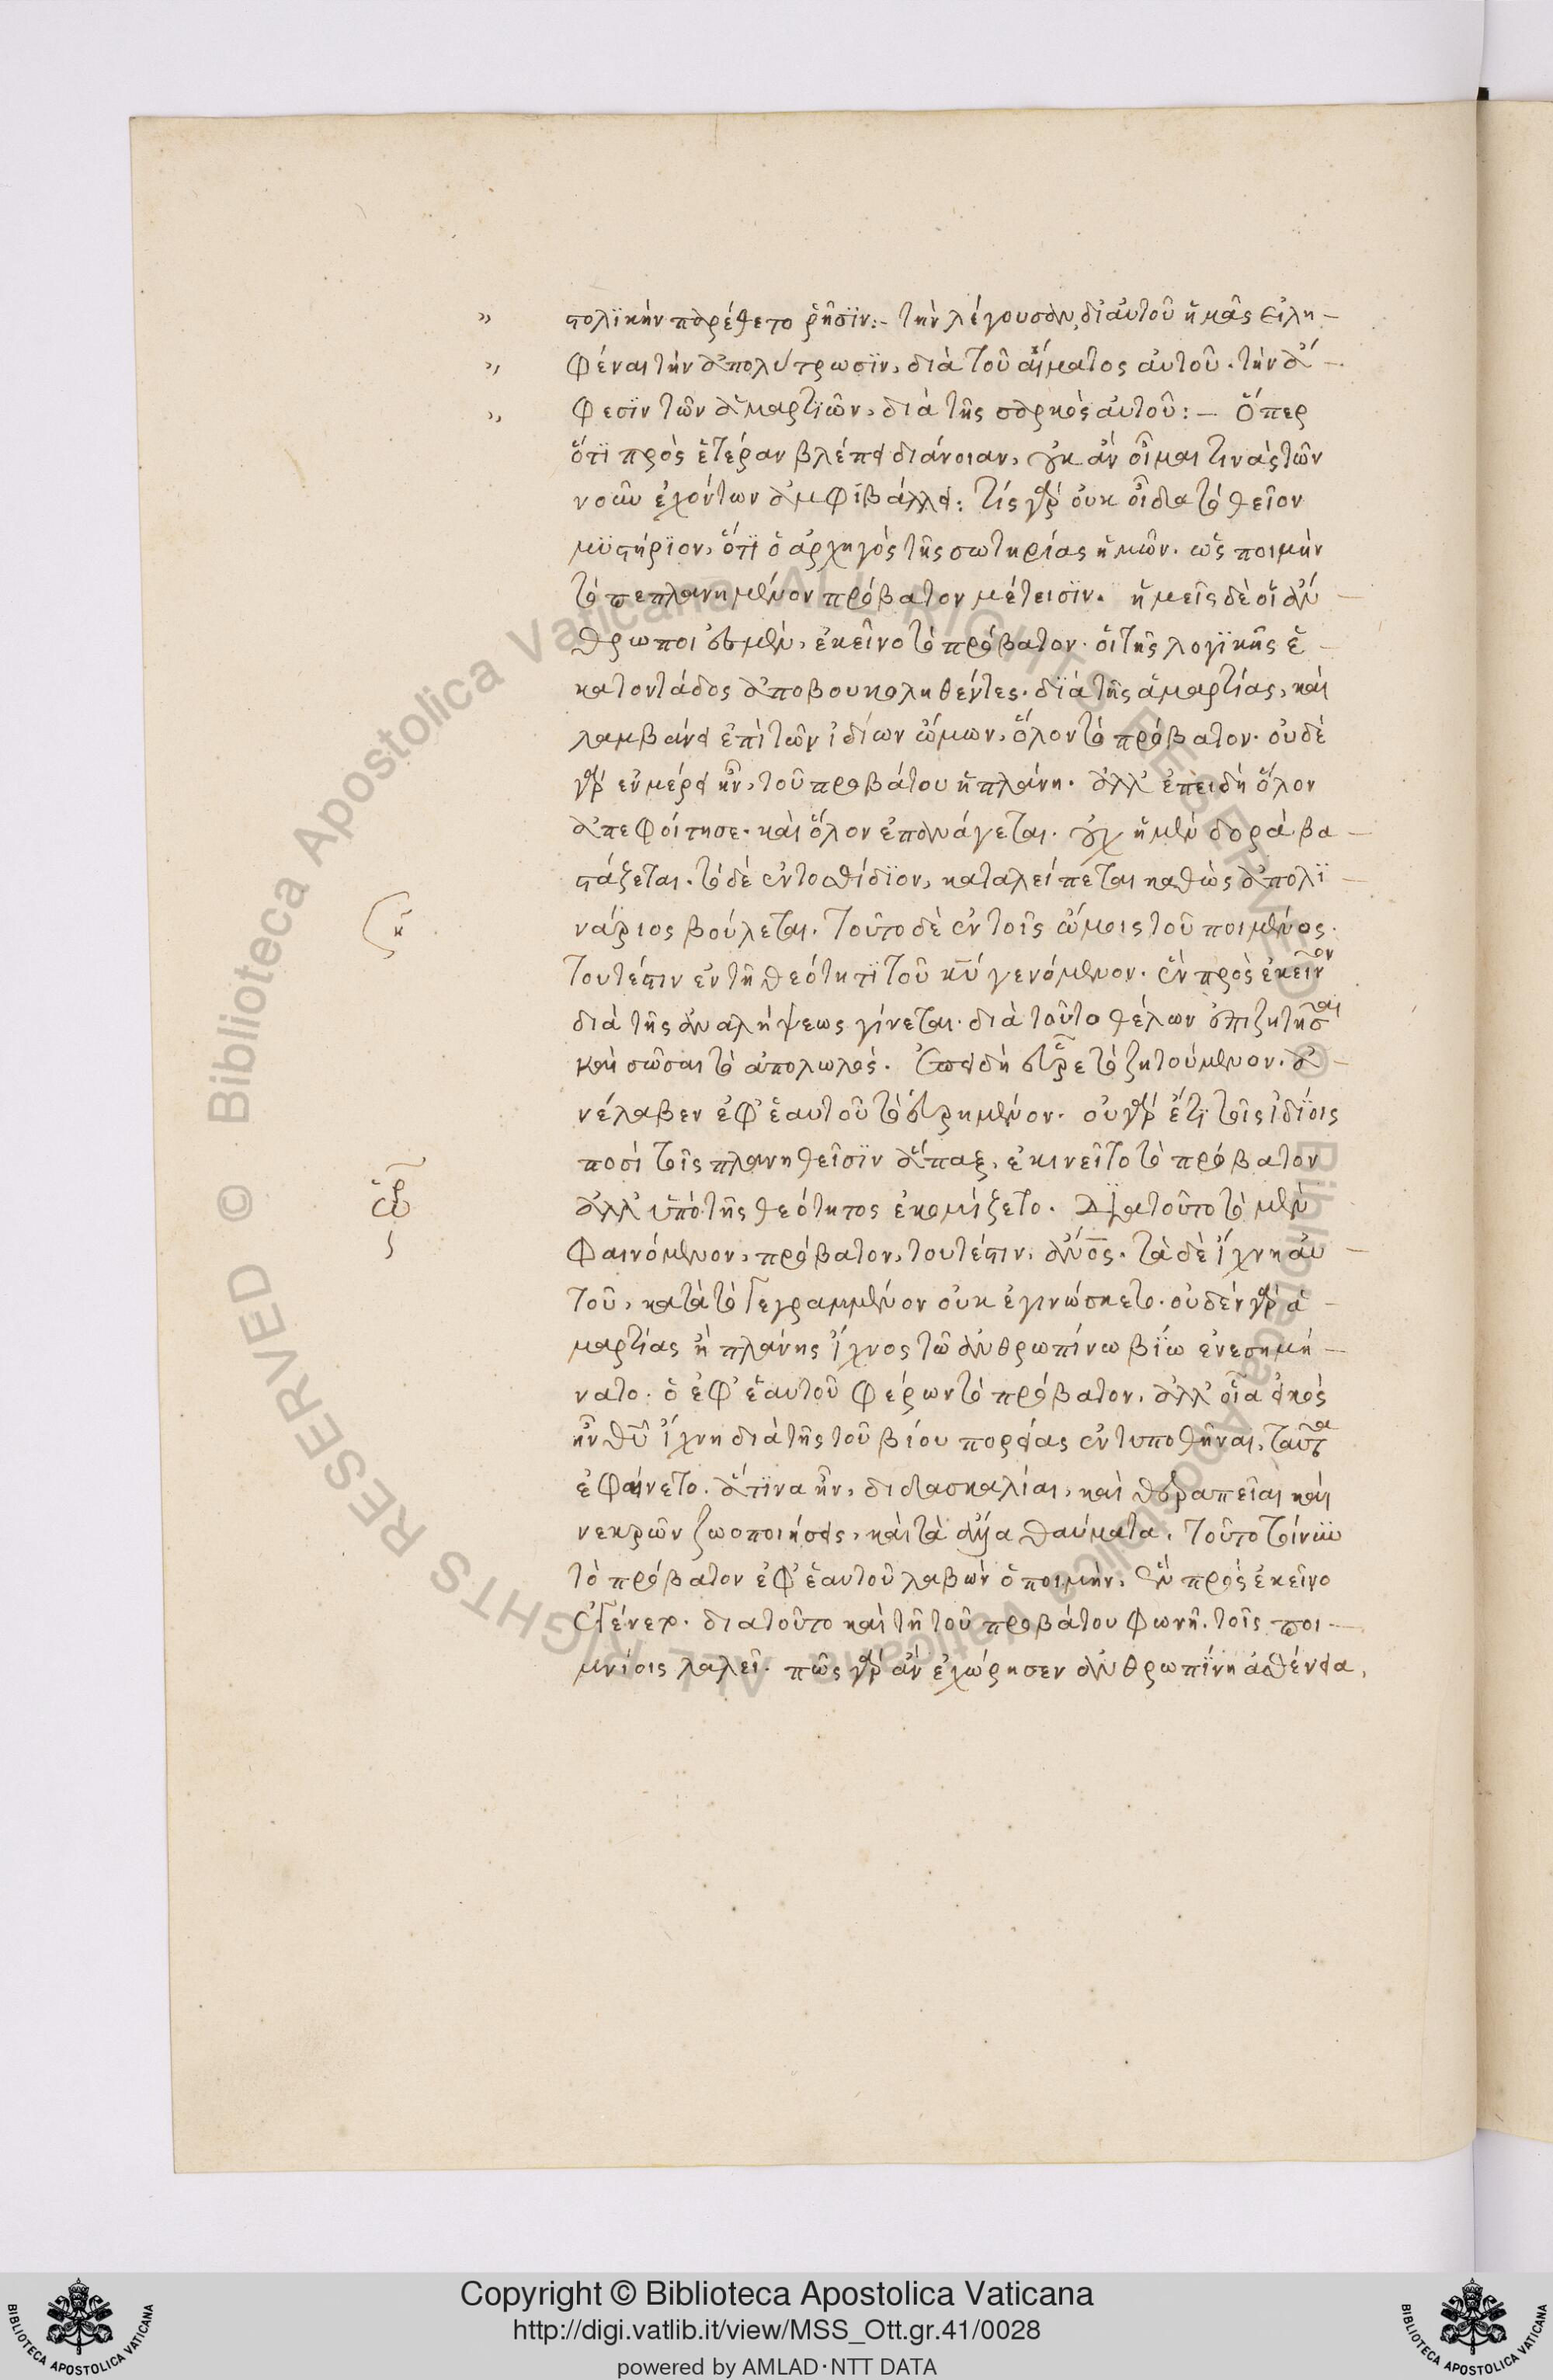 στολϊκήν παρέθετο ῥῆσϊν:- τὴν λέγουσαν, δι αὐτοῦ ἡμᾶς εἰλη-
φέναι τὴν ἀπολύτρωσϊν, διὰ τοῦ αἵματος αὐτοῦ. τὴν ἄ-
φεσϊν τῶν ἁμαρτϊῶν, διὰ τῆς σαρκὸς αὐτοῦ:- ὅπερ
ὅτϊ πρὸς ἑτέραν βλέπει διάνοιαν, οὐκ ἄν οἶμαι τινὰς τῶν
νοῦν ἐχόντων ἀμφϊβάλλει: τίς γὰρ οὐκ οἶδε τὸ θεῖον
μϋστήρϊον, ὅτϊ ὁ ἀρχηγὸς τῆς σωτηρίας ἡμῶν. ὡς ποιμὴν
τὸ πεπλανημένον πρόβατον μέτεισϊν. ἡμεῖς δὲ οἱ ἄν-
θρωποι ἐσμὲν, ἐκεῖνο τὸ πρόβατον. οἱ τῆς λογϊκῆς ἑ-
κατοντάδος ἀποβουκοληθέντες. δϊὰ τῆς ἁμαρτίας, καὶ
λαμβάνει ἐπὶ τῶν ἰδίων ὤμων, ὅλον τὸ πρόβατον. οὐδὲ
γὰρ ἐν μέρει ἦν, τοῦ προβάτου ἡ πλάνη. ἀλλ' ἐπειδὴ ὅλον
ἀπεφοίτησε. καὶ ὅλον ἐπανάγεται. οὐχ ἡ μὲν δορὰ βα-
στάζεται. τὸ δὲ ἐντοσθίδϊον, καταλείπεται καθὼς ἀπολϊ-
νάριος βούλεται. τοῦτο δὲ ἐν τοῖς ὤμοις τοῦ ποιμένος.
τουτέστιν ἐν τῆ θεότητϊ τοῦ κ̅υ̅ γενόμενον. ἓν πρὸς ἐκεῖνον
διὰ τῆς ἀναλήψεως γίνεται. διὰ τοῦτο θέλων ἐπιζητῆσαι
καὶ σῶσαι τὸ ἀπολωλὸς. ἐπειδὴ εὗρε τὸ ζητούμενον. ἀ-
νέλαβεν ἐφ' ἑαυτοῦ τὸ εὑρημένον. οὐ γὰρ ἔτϊ τοῖς ἰδϊοις
ποσὶ τοῖς πλανηθεῖσϊν ἅπαξ, ἐκινεῖτο τὸ πρόβατον
ἀλλ' ὑπὸ τῆς θεότητος ἐκομίζετο. Διὰ τοῦτο τὸ μὲν
φαινόμενον, πρόβατον, τουτέστιν, ἄ̅ν̅ο̅ς̅. τὰ δὲ ἴχνη αὐ-
τοῦ, κατὰ τὸ γεγραμμένον οὐκ ἐγινώσκετο. οὐδὲν γὰρ ἁ-
μαρτίας ἢ πλάνης ἴχνος τῶ ἀνθρωπίνω βϊω ἐνεσημή-
νατο. ὁ ἐφ' ἑαυτοῦ φέρων τὸ πρόβατον, ἀλλ' οἷα εἰκὸς
ἦν θ̅υ̅ ἴχνη διὰ τῆς τοῦ βίου πορείας ἐντυπωθῆναι, ταῦτα
ἐφαίνετο. ἅτϊνα ἦν, διδασκαλίαι, καὶ θεραπεῖαι καὶ
νεκρῶν ζωοποιήσεις, καὶ τὰ ἄλλα θαύματα, τοῦτο τοίνυν
τὸ πρόβατον ἐφ' ἑαυτοῦ λαβὼν ὁ ποιμὴν, ἓν πρὸς ἐκεῖνο
ἐγένετο. διατοῦτο καὶ τῆ τοῦ προβάτου φωνῆ. τοῖς ποι-
μνίοις λαλεῖ. πῶς γὰρ ἂν ἐχώρησεν ἀνθρωπϊνη ἀσθένεια,
Copyright © Biblioteca Apostolica Vaticana
http://digi.vatlib.it/view/MSS_Ott.gr.41/0028
powered by AMLAD·NTT DATA
BIBLIOTECA APOSTOLICA VATICANA
BIBLIOTECA APOSTOLICA VATICANA
© Biblioteca Apostolica Vaticana ALL RIGHTS RESERVED
© Biblioteca Apostolica Vaticana ALL RIGHTS RESERVED